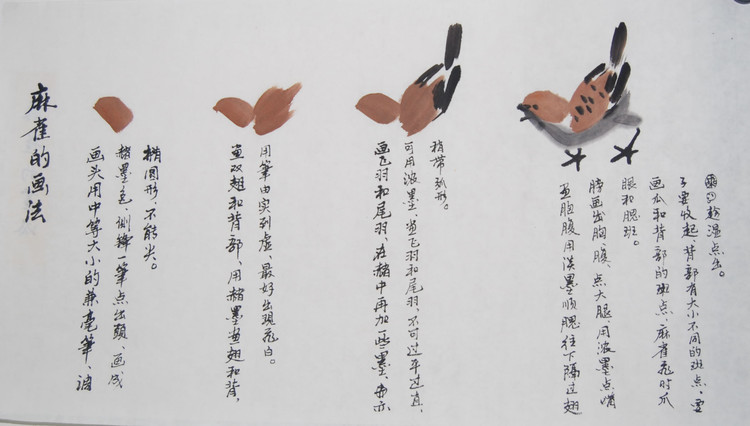 麻雀的画法
画头用中等大小的兼毫筆、
赭墨色,侧鋒一筆点出頭、画成
椭圆形,不能尖。
画双翅和背部,用赭墨画翅和背,
用筆由实到虚,最好出現飞白。
画飞羽和尾羽,在赭中再加一些墨,亦
可用浓墨,画飞羽和尾羽,不可过平过直,
稍带弧形。
画胸腹用淡墨顺腮往下隔过翅
膀画出胸、腹、点大腿、用浓墨点嘴
眼和腮斑。
画爪和背部的斑点,麻雀飞时爪
子要收起,背部有大小不同的斑点,要
趁湿点出。